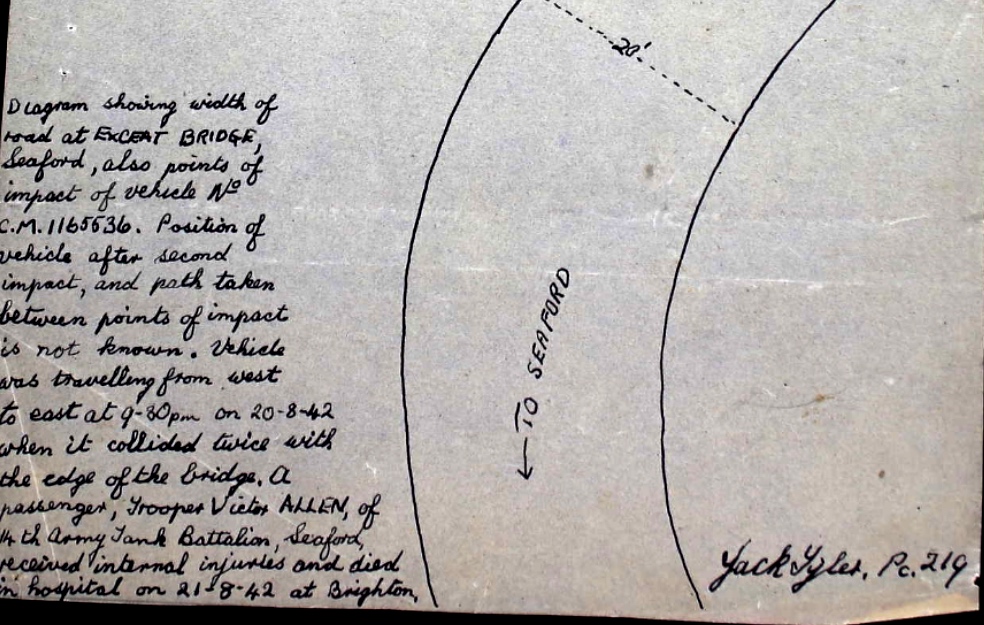 20'
Diagram showing width of
road at EXCEAT BRIDGE,
Seaford, also points of
impact of vehicle No
C.M. 1165536. Position of
vehicle after second
impact, and path taken
between points of impact
is not known. Vehicle
was travelling from west
to east at 9-30pm on 20-8-42
when it collided twice with
the edge of the bridge. A
passenger, Trooper Victor ALLEN, of
14th Army Tank Battalion, Seaford,
received internal injuries and died
in hospital on 21-8-42 at Brighton.
← TO SEAFORD
Jack Tyler. Pc. 219